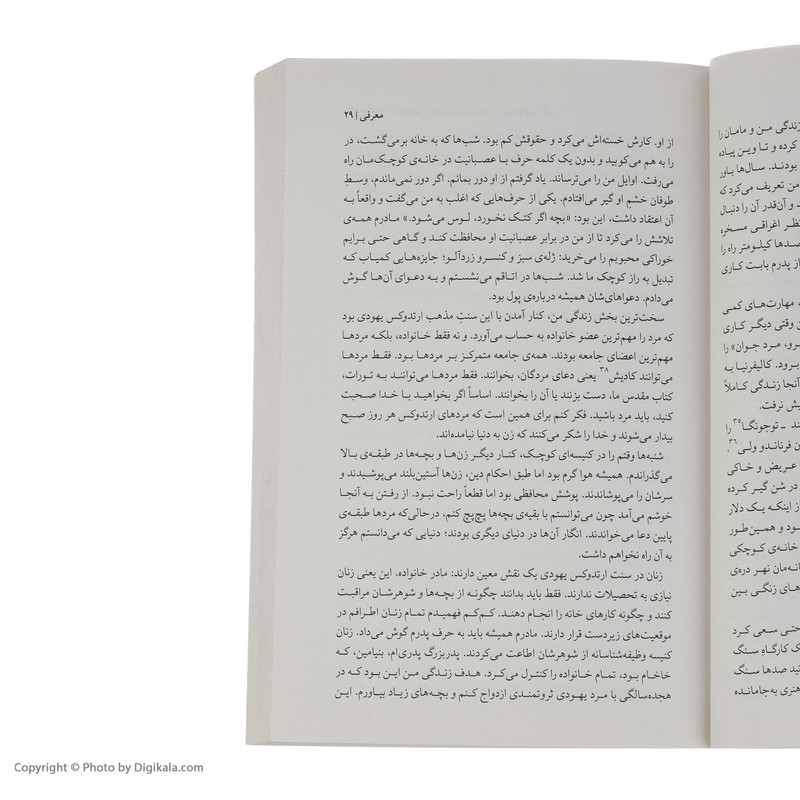 زندگی من و مامان را
کرده و تا وین پیاده
بودند. سال‌ها باور
من تعریف می‌کرد که
و آن‌قدر آن را دنبال
نظر اغراقی مسخره
صدها کیلومتر راه را
از پدرم بابت کاری
مهارت‌های کمی
وقتی دیگر کاری
مرد جوان» را
برود. کالیفرنیا به
آنجا زندگی کاملاً
پیش نرفت.
ـ توجونگا۳۵ را
فرناندو ولی۳۶.
عریض و خاکی
در شن گیر کرده
از اینکه یک دلار
بود و همین‌طور
خانه‌ی کوچکی
نهر دره‌ی
زنگی بین
حتی سعی کرد
کارگاه سنگ
صدها سنگ
هنری به‌جامانده
معرفی | ۲۹
از او. کارش خسته‌اش می‌کرد و حقوقش کم بود. شب‌ها که به خانه برمی‌گشت، در
را به هم می‌کوبید و بدون یک کلمه حرف با عصبانیت در خانه‌ی کوچک‌مان راه
می‌رفت. اوایل من را می‌ترساند. یاد گرفتم از او دور بمانم. اگر دور نمی‌ماندم، وسطِ
طوفان خشم او گیر می‌افتادم. یکی از حرف‌هایی که اغلب به من می‌گفت و واقعاً به
آن اعتقاد داشت، این بود: «بچه اگر کتک نخورد، لوس می‌شود.» مادرم همه‌ی
تلاشش را می‌کرد تا از من در برابر عصبانیت او محافظت کند و گاهی حتی برایم
خوراکی محبوبم را می‌خرید: ژله‌ی سبز و کنسرو زردآلو؛ جایزه‌هایی کمیاب که
تبدیل به راز کوچک ما شد. شب‌ها در اتاقم می‌نشستم و به دعوای آن‌ها گوش
می‌دادم. دعواهای‌شان همیشه درباره‌ی پول بود.
سخت‌ترین بخش زندگی من، کنار آمدن با این سنتِ مذهب ارتدوکس یهودی بود
که مرد را مهم‌ترین عضو خانواده به حساب می‌آورد. و نه فقط خانواده، بلکه مردها
مهم‌ترین اعضای جامعه بودند. همه‌ی جامعه متمرکز بر مردها بود. فقط مردها
می‌توانند کادیش۳۸ یعنی دعای مردگان، بخوانند. فقط مردها می‌توانند به تورات،
کتاب مقدس ما، دست بزنند یا آن را بخوانند. اساساً اگر بخواهید با خدا صحبت
کنید، باید مرد باشید. فکر کنم برای همین است که مردهای ارتدوکس هر روز صبح
بیدار می‌شوند و خدا را شکر می‌کنند که زن به دنیا نیامده‌اند.
شنبه‌ها وقتم را در کنیسه‌ای کوچک، کنار دیگر زن‌ها و بچه‌ها در طبقه‌ی بالا
می‌گذراندم. همیشه هوا گرم بود اما طبق احکام دین، زن‌ها آستین‌بلند می‌پوشیدند و
سرشان را می‌پوشاندند. پوشش محافظی بود اما قطعاً راحت نبود. از رفتن به آنجا
خوشم می‌آمد چون می‌توانستم با بقیه‌ی بچه‌ها پچ‌پچ کنم، درحالی‌که مردها طبقه‌ی
پایین دعا می‌خواندند. انگار آن‌ها در دنیای دیگری بودند؛ دنیایی که می‌دانستم هرگز
به آن راه نخواهم داشت.
زنان در سنت ارتدوکس یهودی یک نقش معین دارند: مادر خانواده. این یعنی زنان
نیازی به تحصیلات ندارند. فقط باید بدانند چگونه از بچه‌ها و شوهرشان مراقبت
کنند و چگونه کارهای خانه را انجام دهند. کم‌کم فهمیدم تمام زنان اطرافم در
موقعیت‌های زیردست قرار دارند. مادرم همیشه باید به حرف پدرم گوش می‌داد. زنان
کنیسه وظیفه‌شناسانه از شوهرشان اطاعت می‌کردند. پدربزرگ پدری‌ام، بنیامین، که
خاخام بود، تمام خانواده را کنترل می‌کرد. هدف زندگی من این بود که در
هجده‌سالگی با مرد یهودی ثروتمندی ازدواج کنم و بچه‌های زیاد بیاورم. این
Copyright © Photo by Digikala.com